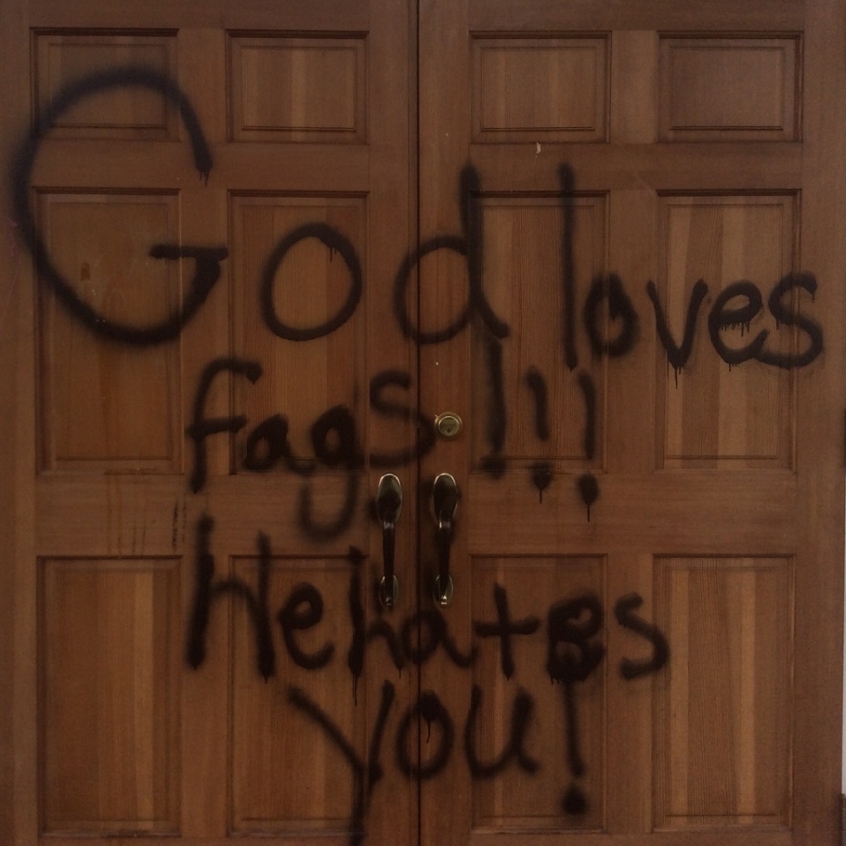 God loves
fags!!!
He hates
you!